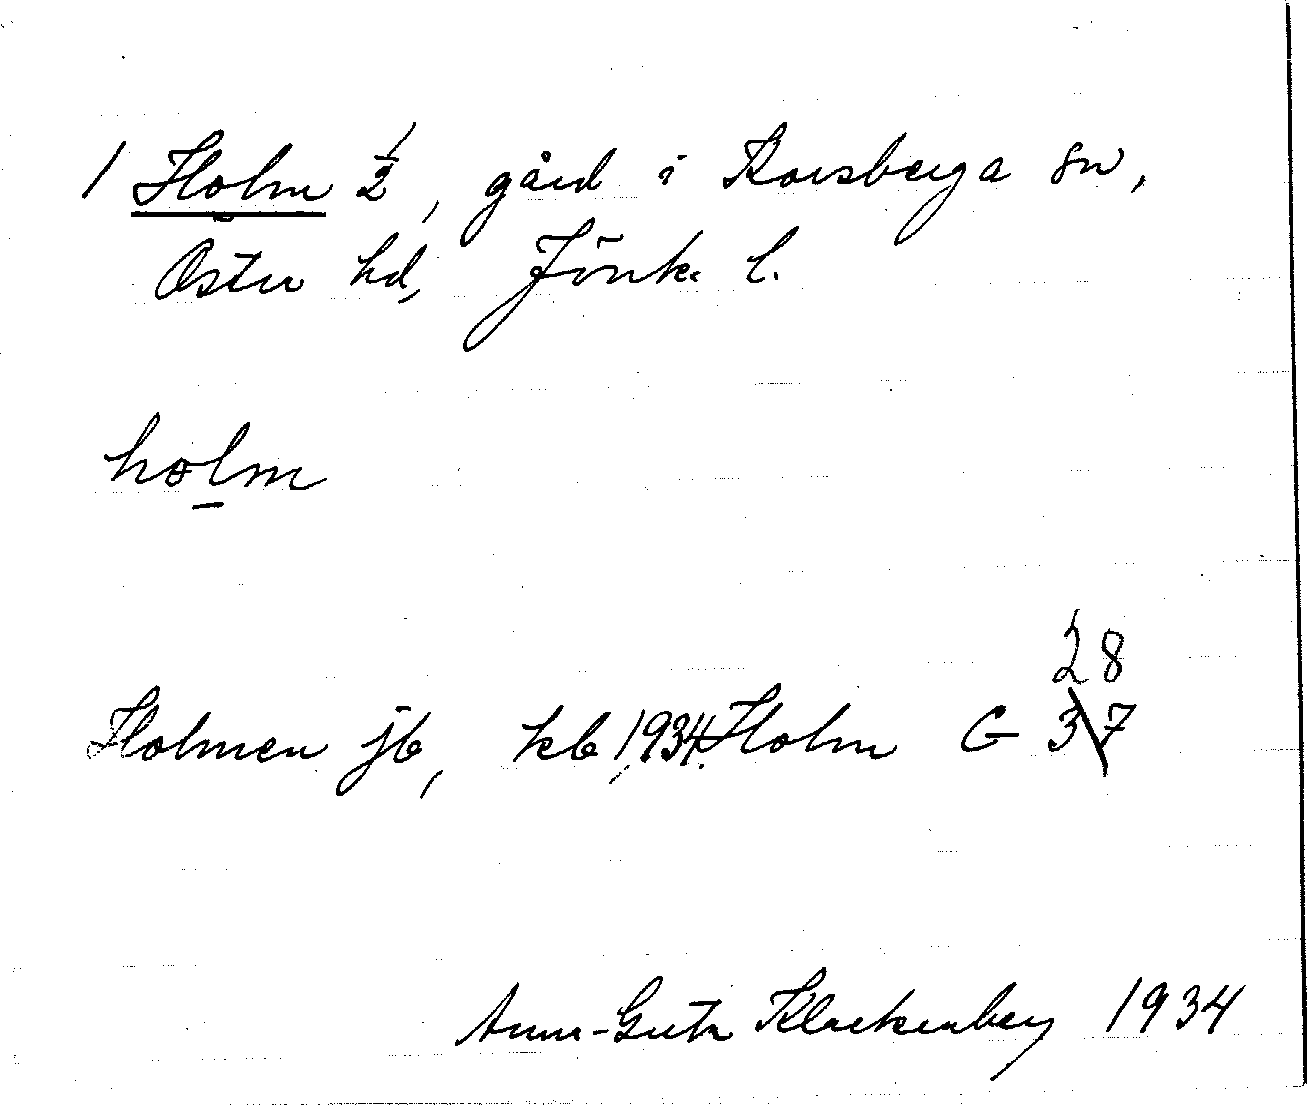 1 Holm ½, gård i Korsberga sn,
Östra hd, Jönk. l.
holm
28
Holmen jb, kb 1934. Holm G 37
Anna-Greta Klackenberg 1934